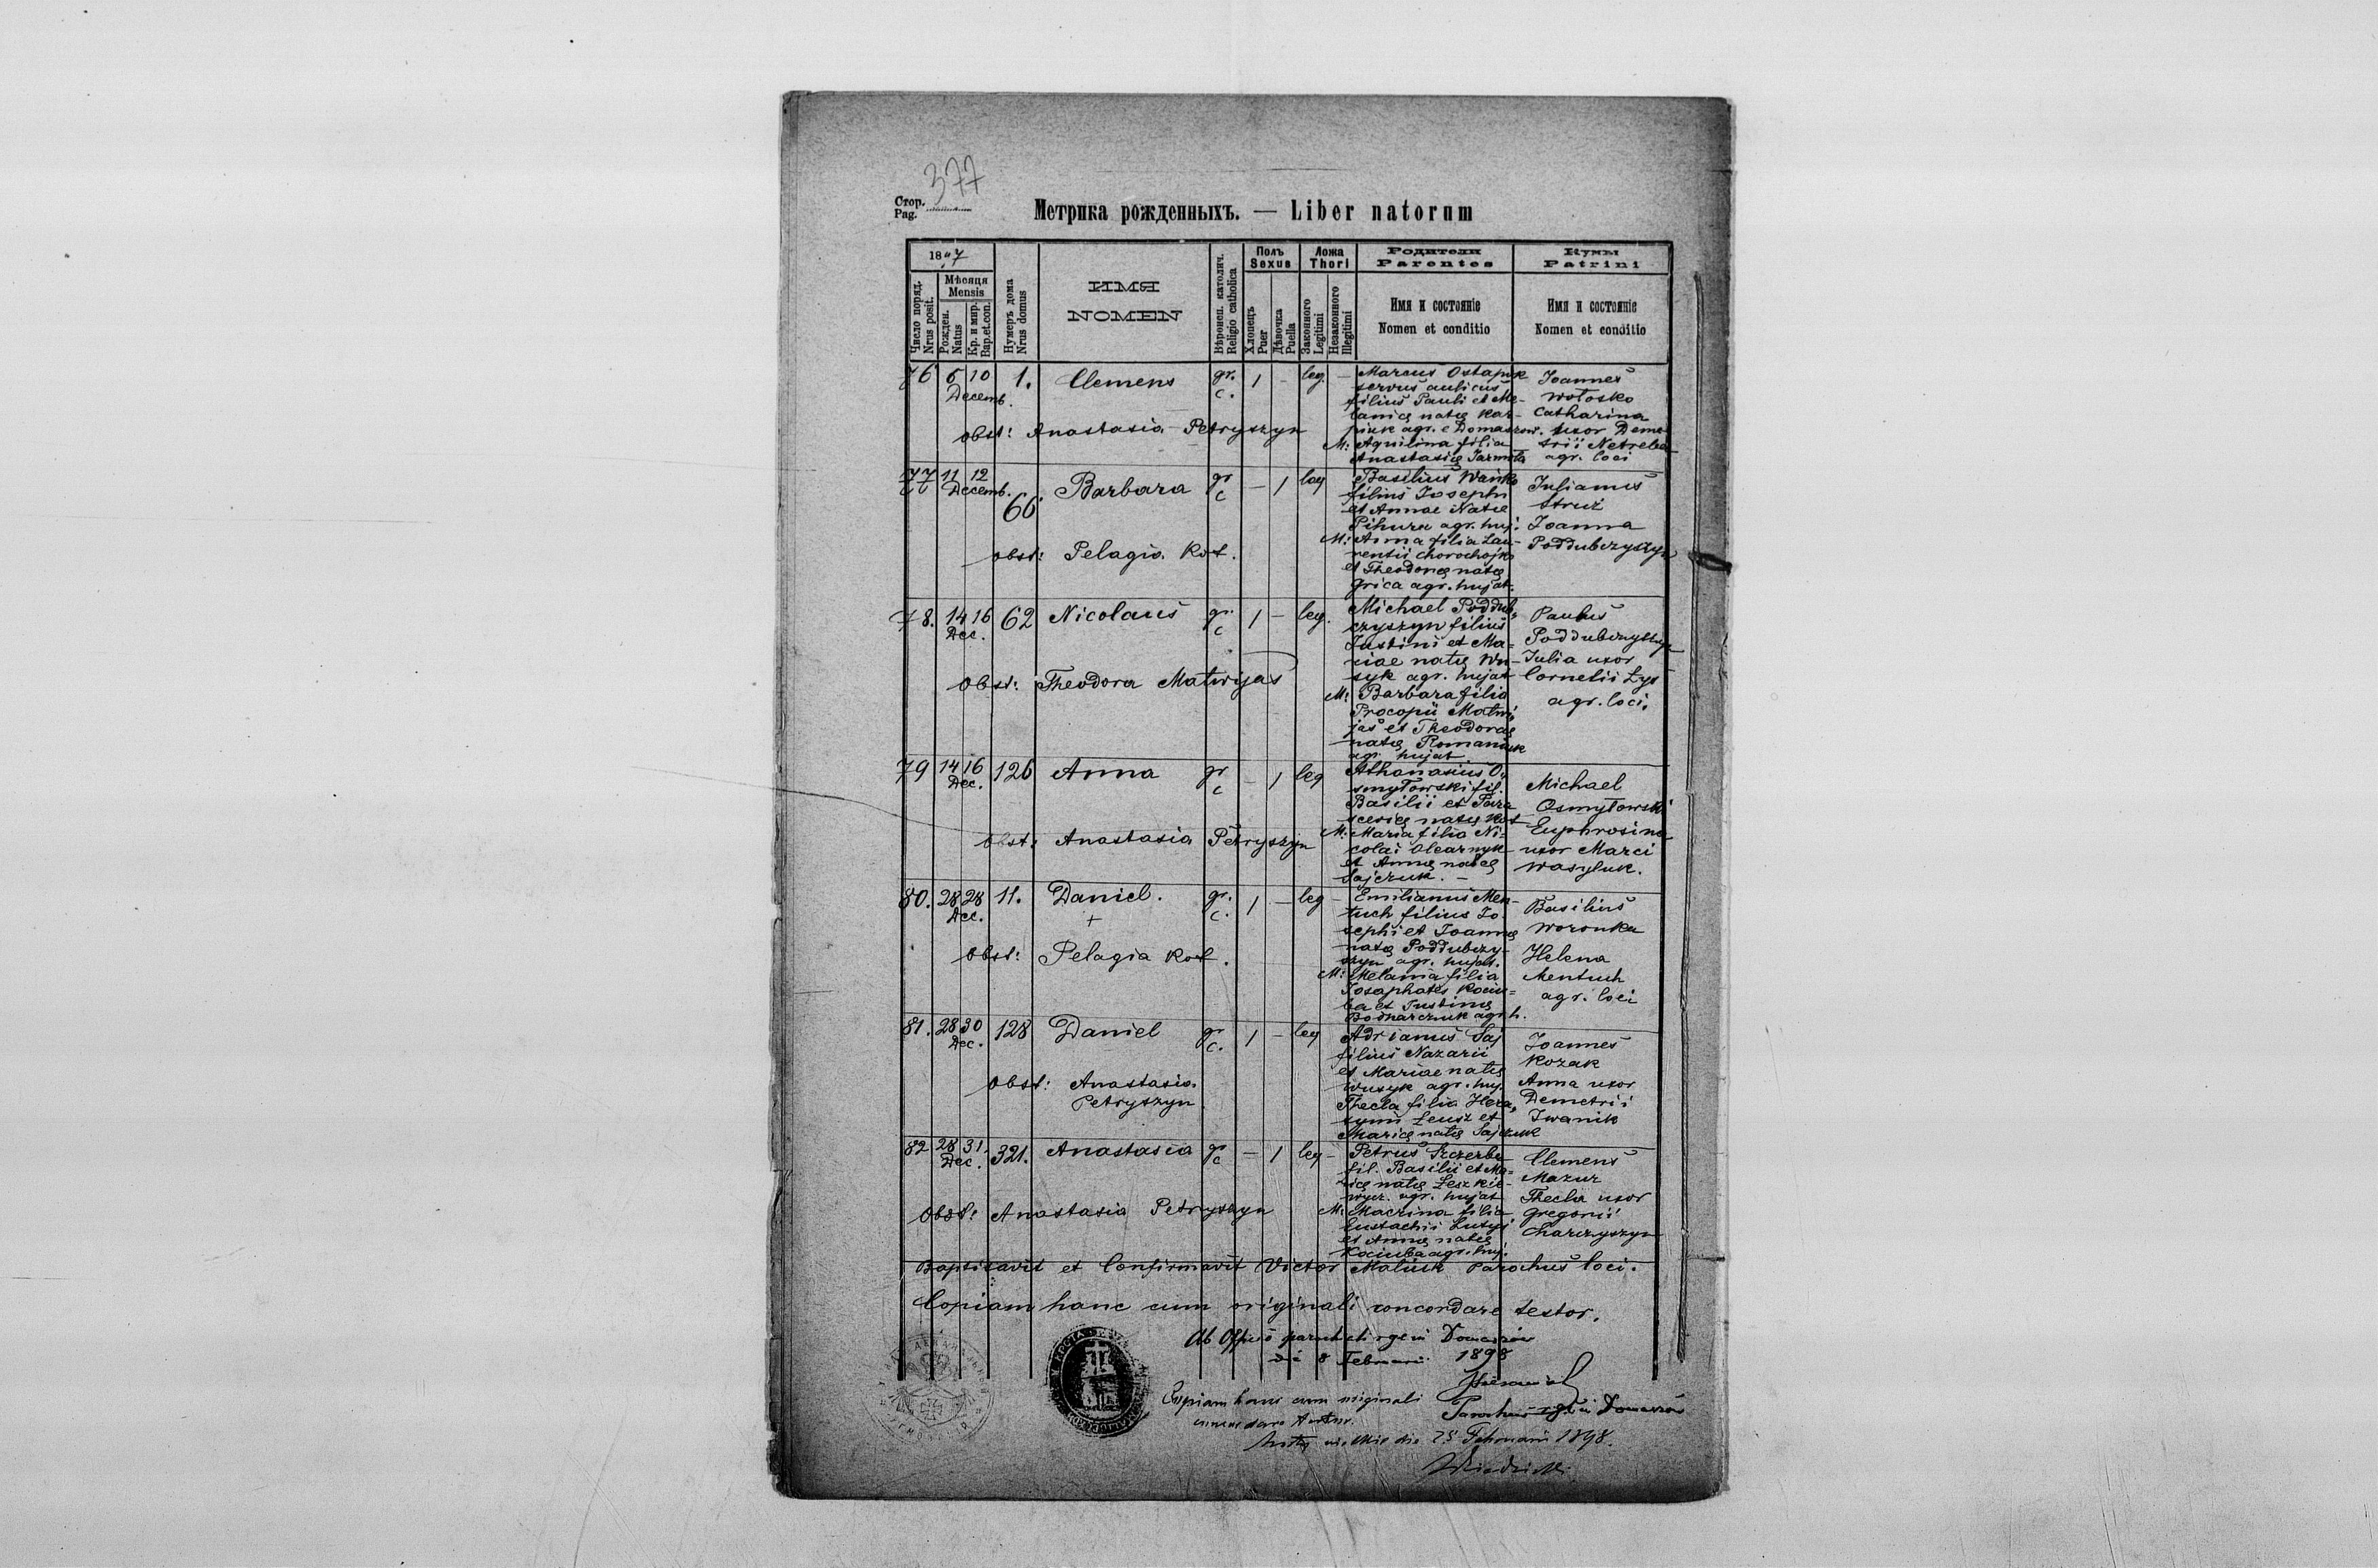 377
Стор.
Pag.
Метрика рожденныхъ. — Liber natorum
1897
Число поряд.
Nrus posit.
Мѣсяця
Mensis
Рожден.
Natus
Кр. и мир.
Bap. et con.
Нумеръ дома
Nrus domus
ИМЯ
NOMEN
Вѣроисп. католич.
Religio catholica
Полъ
Sexus
Хлопець
Puer
Дѣвочка
Puella
Ложа
Thori
Законного
Legitimi
Незаконного
Illegitimi
Родители
Parentes
Имя и состояніе
Nomen et conditio
Кумы
Patrini
Имя и состояніе
Nomen et conditio
76 6 10 Decemb. 1. Clemens gr. c. 1 – leg. –
Marcus Ostapuk
servus aulicus
filius Pauli et Me-
lanię natę Kar-
piuk agr. e Domaszow.
M: Aquilina filia
Anastasię Jarmola
Joannes
Wołosko
Catharina
uxor Deme
trii Netreba
agr. loci
obst: Anastasia Petryszyn
77 11 12 Decemb. 66 Barbara gr c – 1 leg
Basilius Wańko
filius Josephi
et Annae Natę
Pihura agr. huj.
M: Anna filia Lau-
rentii Chorochojko
et Theodorę natę
Grica agr. hujat.
Julianus
Struż
Joanna
Poddubczyszyn
obst: Pelagia Kot.
78. 14 16 Dec. 62 Nicolaus gr. c 1 – leg.
Michael Poddub-
czyszyn filius
Justini et Ma-
riae natę Wu-
syk agr. hujat
M: Barbara filia
Procopii Matwi
jas et Theodorae
natę Romaniuk
agr. hujat.
Paulus
Poddubczyszyn
Julia uxor
Cornelii Łys
agr. loci.
Obst: Theodora Matwijas
79 14 16 Dec. 126 Anna gr c – 1 leg
Athanasius O-
smyłowski fil.
Basilii et Para
scevię natę Kot
M: Maria filia Ni-
colai Olearnyk
et Annę natę
Sajczuk. –
Michael
Osmyłowski
Euphrosina
uxor Marci
Wasyluk.
Obst: Anastasia Petryszyn
80. 28 28 Dec. 11. Daniel. + gr. c. 1 – leg –
Emilianus Men-
tuch filius Jo
sephi et Joannę
natę Poddubczy-
szyn agr. hujat.
M: Melania filia
Josaphatis Kociu-
ba et Justinę
Bodnarczuk agr. h.
Basilius
Woronka
Helena
Mentuch
agr. loci
Obst: Pelagia Kot.
81. 28 30 Dec. 128 Daniel gr c. 1 – leg
Adrianus Saj
filius Nazarii
et Mariae natę
Wusyk agr. huj.
Thecla filia Hera-
symi Łeusz et
Marię natę Sajczuk
Joannes
Kozak
Anna uxor
Demetrii
Iwanik
Obst: Anastasia
Petryszyn
82 28 31. Dec. 321. Anastasia gr c – 1 leg –
Petrus Szczerba
fil. Basilii et Ma-
rię natę Leszkie-
wycz. agr. hujat
M. Macrina filia
Eustachii Lutyj
et Annę natę
Kociuba agr. huj.
Clemens
Mazur
Thecla uxor
Gregorii
Charczyszyn
Obst: Anastasia Petryszyn
Baptisavit et Confirmavit Victor Maliuk Parochus loci.
Copiam hanc cum originali concordare testor.
Ab Officio parochiali rgc in Domaszów
die 8 Februarii 1898
Parochus rgc in Domaszów
Copiam hanc cum originali
concordare testor.
die 25 Februarii 1898.